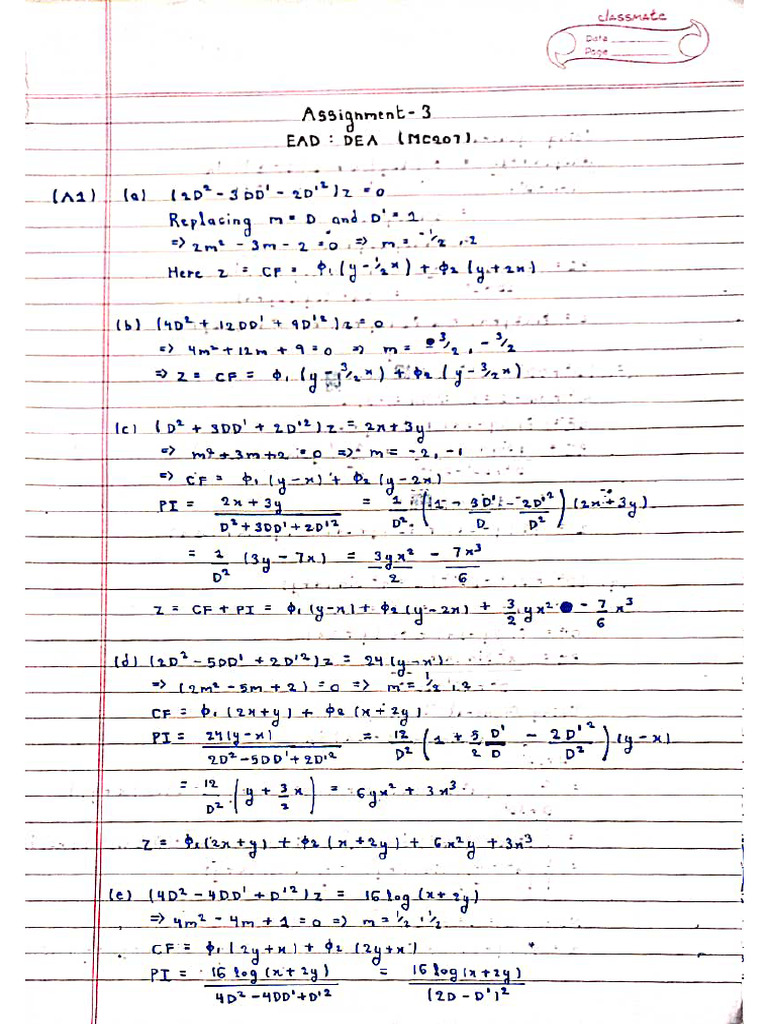 classmate
Date
Page
Assignment-3
EAD : DEA (MC207)
(A1) (a) (2D² - 3DD' - 2D'²)z = 0
Replacing m = D and D' = 1
=> 2m² - 3m - 2 = 0 => m = -1/2, 2
Here z = CF = ϕ₁(y - 1/2 x) + ϕ₂(y + 2x)
(b) (4D² + 12DD' + 9D'²)z = 0
=> 4m² + 12m + 9 = 0 => m = 3/2, -3/2
=> z = CF = ϕ₁(y - 3/2 x) + ϕ₂(y - 3/2 x)
(c) (D² + 3DD' + 2D'²)z = 2x + 3y
=> m² + 3m + 2 = 0 => m = -2, -1
=> CF = ϕ₁(y - x) + ϕ₂(y - 2x)
PI = (2x + 3y)/(D² + 3DD' + 2D'²) = 1/D² (1 - 3D'/D - 2D'²/D²)(2x + 3y)
= 1/D² (3y - 7x) = 3yx²/2 - 7x³/6
z = CF + PI = ϕ₁(y - x) + ϕ₂(y - 2x) + 3/2 yx² - 7/6 x³
(d) (2D² - 5DD' + 2D'²)z = 24(y - x)
=> (2m² - 5m + 2) = 0 => m = 1/2, 2
CF = ϕ₁(2x + y) + ϕ₂(x + 2y)
PI = 24(y - x)/(2D² - 5DD' + 2D'²) = 12/D² (1 + 5/2 D'/D - 2D'²/D²)(y - x)
= 12/D² (y + 3/2 x) = 6yx² + 3x³
z = ϕ₁(2x + y) + ϕ₂(x + 2y) + 6x²y + 3x³
(e) (4D² - 4DD' + D'²)z = 16 log(x + 2y)
=> 4m² - 4m + 1 = 0 => m = 1/2, 1/2
CF = ϕ₁(2y + x) + ϕ₂(2y + x)
PI = 16 log(x + 2y)/(4D² - 4DD' + D'²) = 16 log(x + 2y)/(2D - D')²